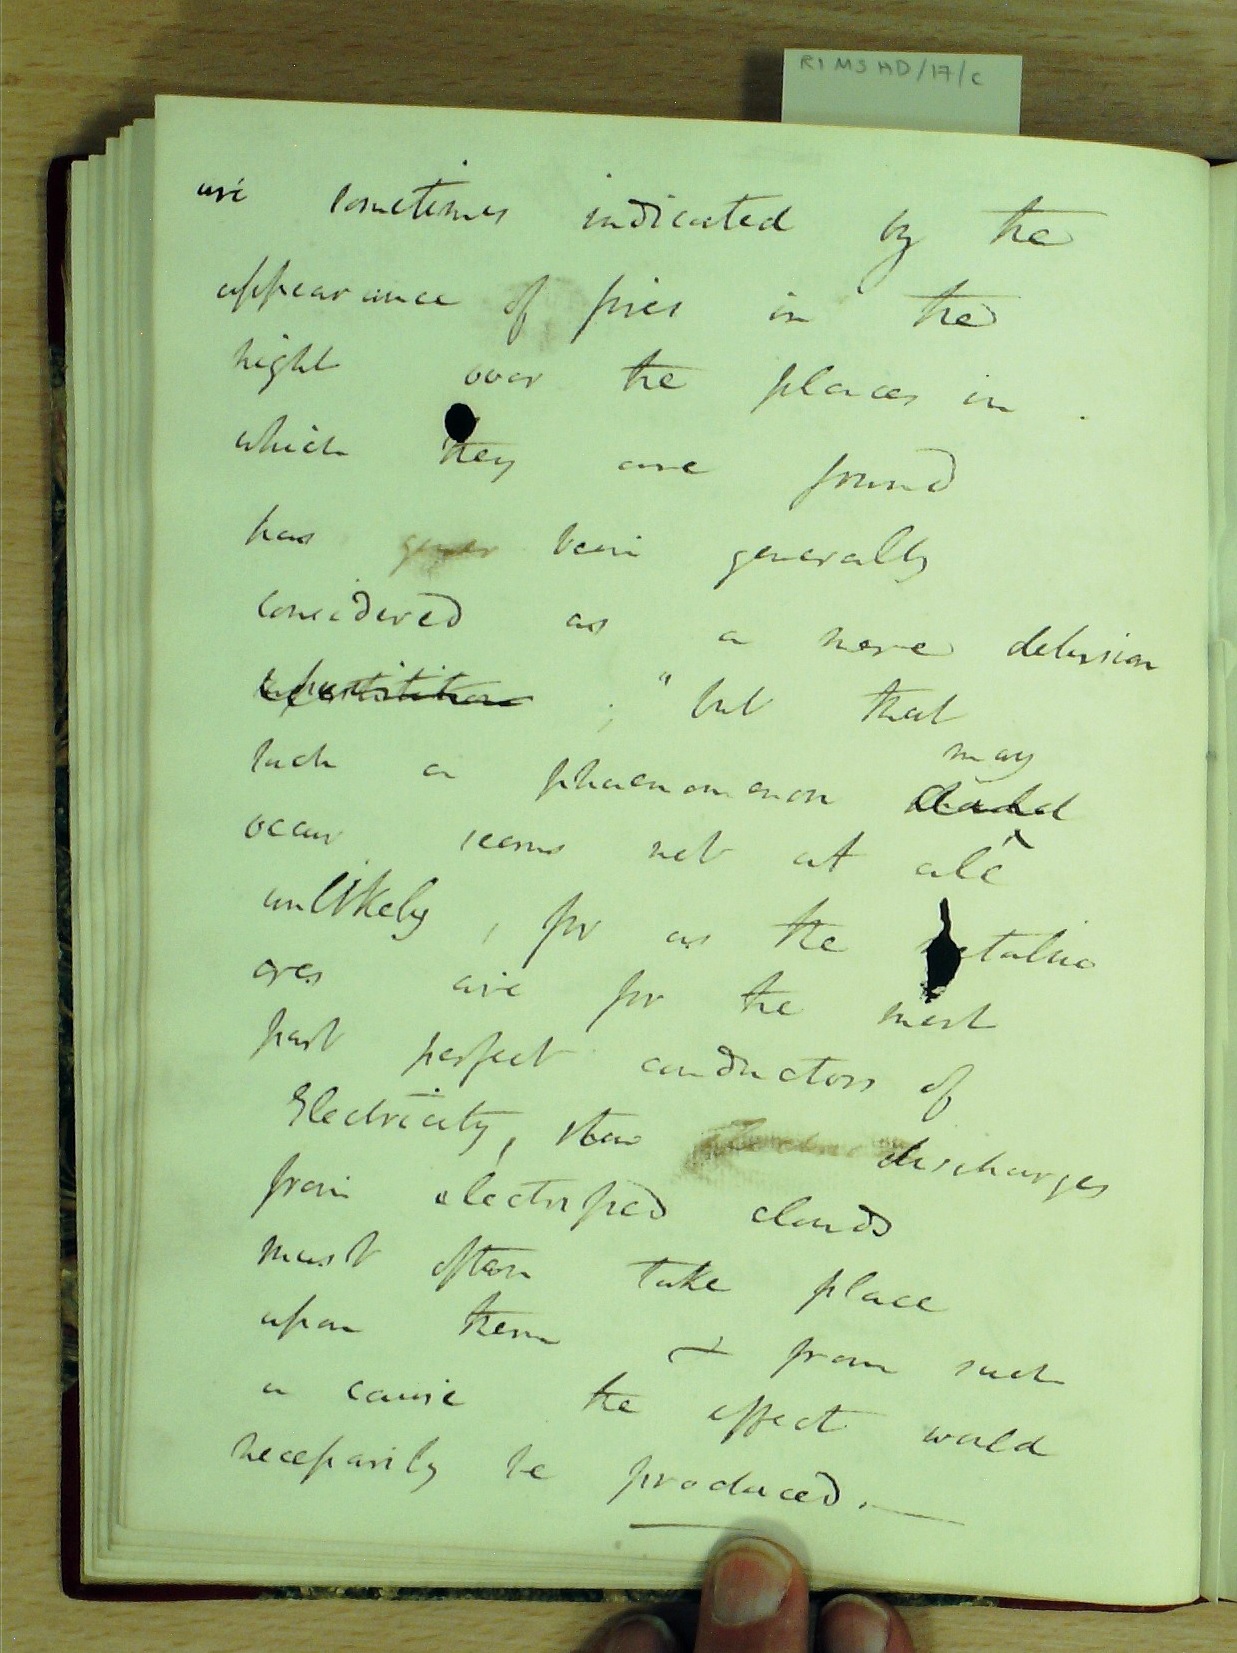 RI MS HD/17/C
are sometimes indicated by the
appearance of fires in the
night over the places in
which they are found
has gener been generally
considered as a mere delusion
superstition ; " but that
may
such a phaenomenon should
occur seems not at all
unlikely, for as the metallic
ores are for the most
part perfect conductors of
Electricity, slow discharges
from electrified clouds
must often take place
upon them & from such
a cause the effect would
necessarily be produced.